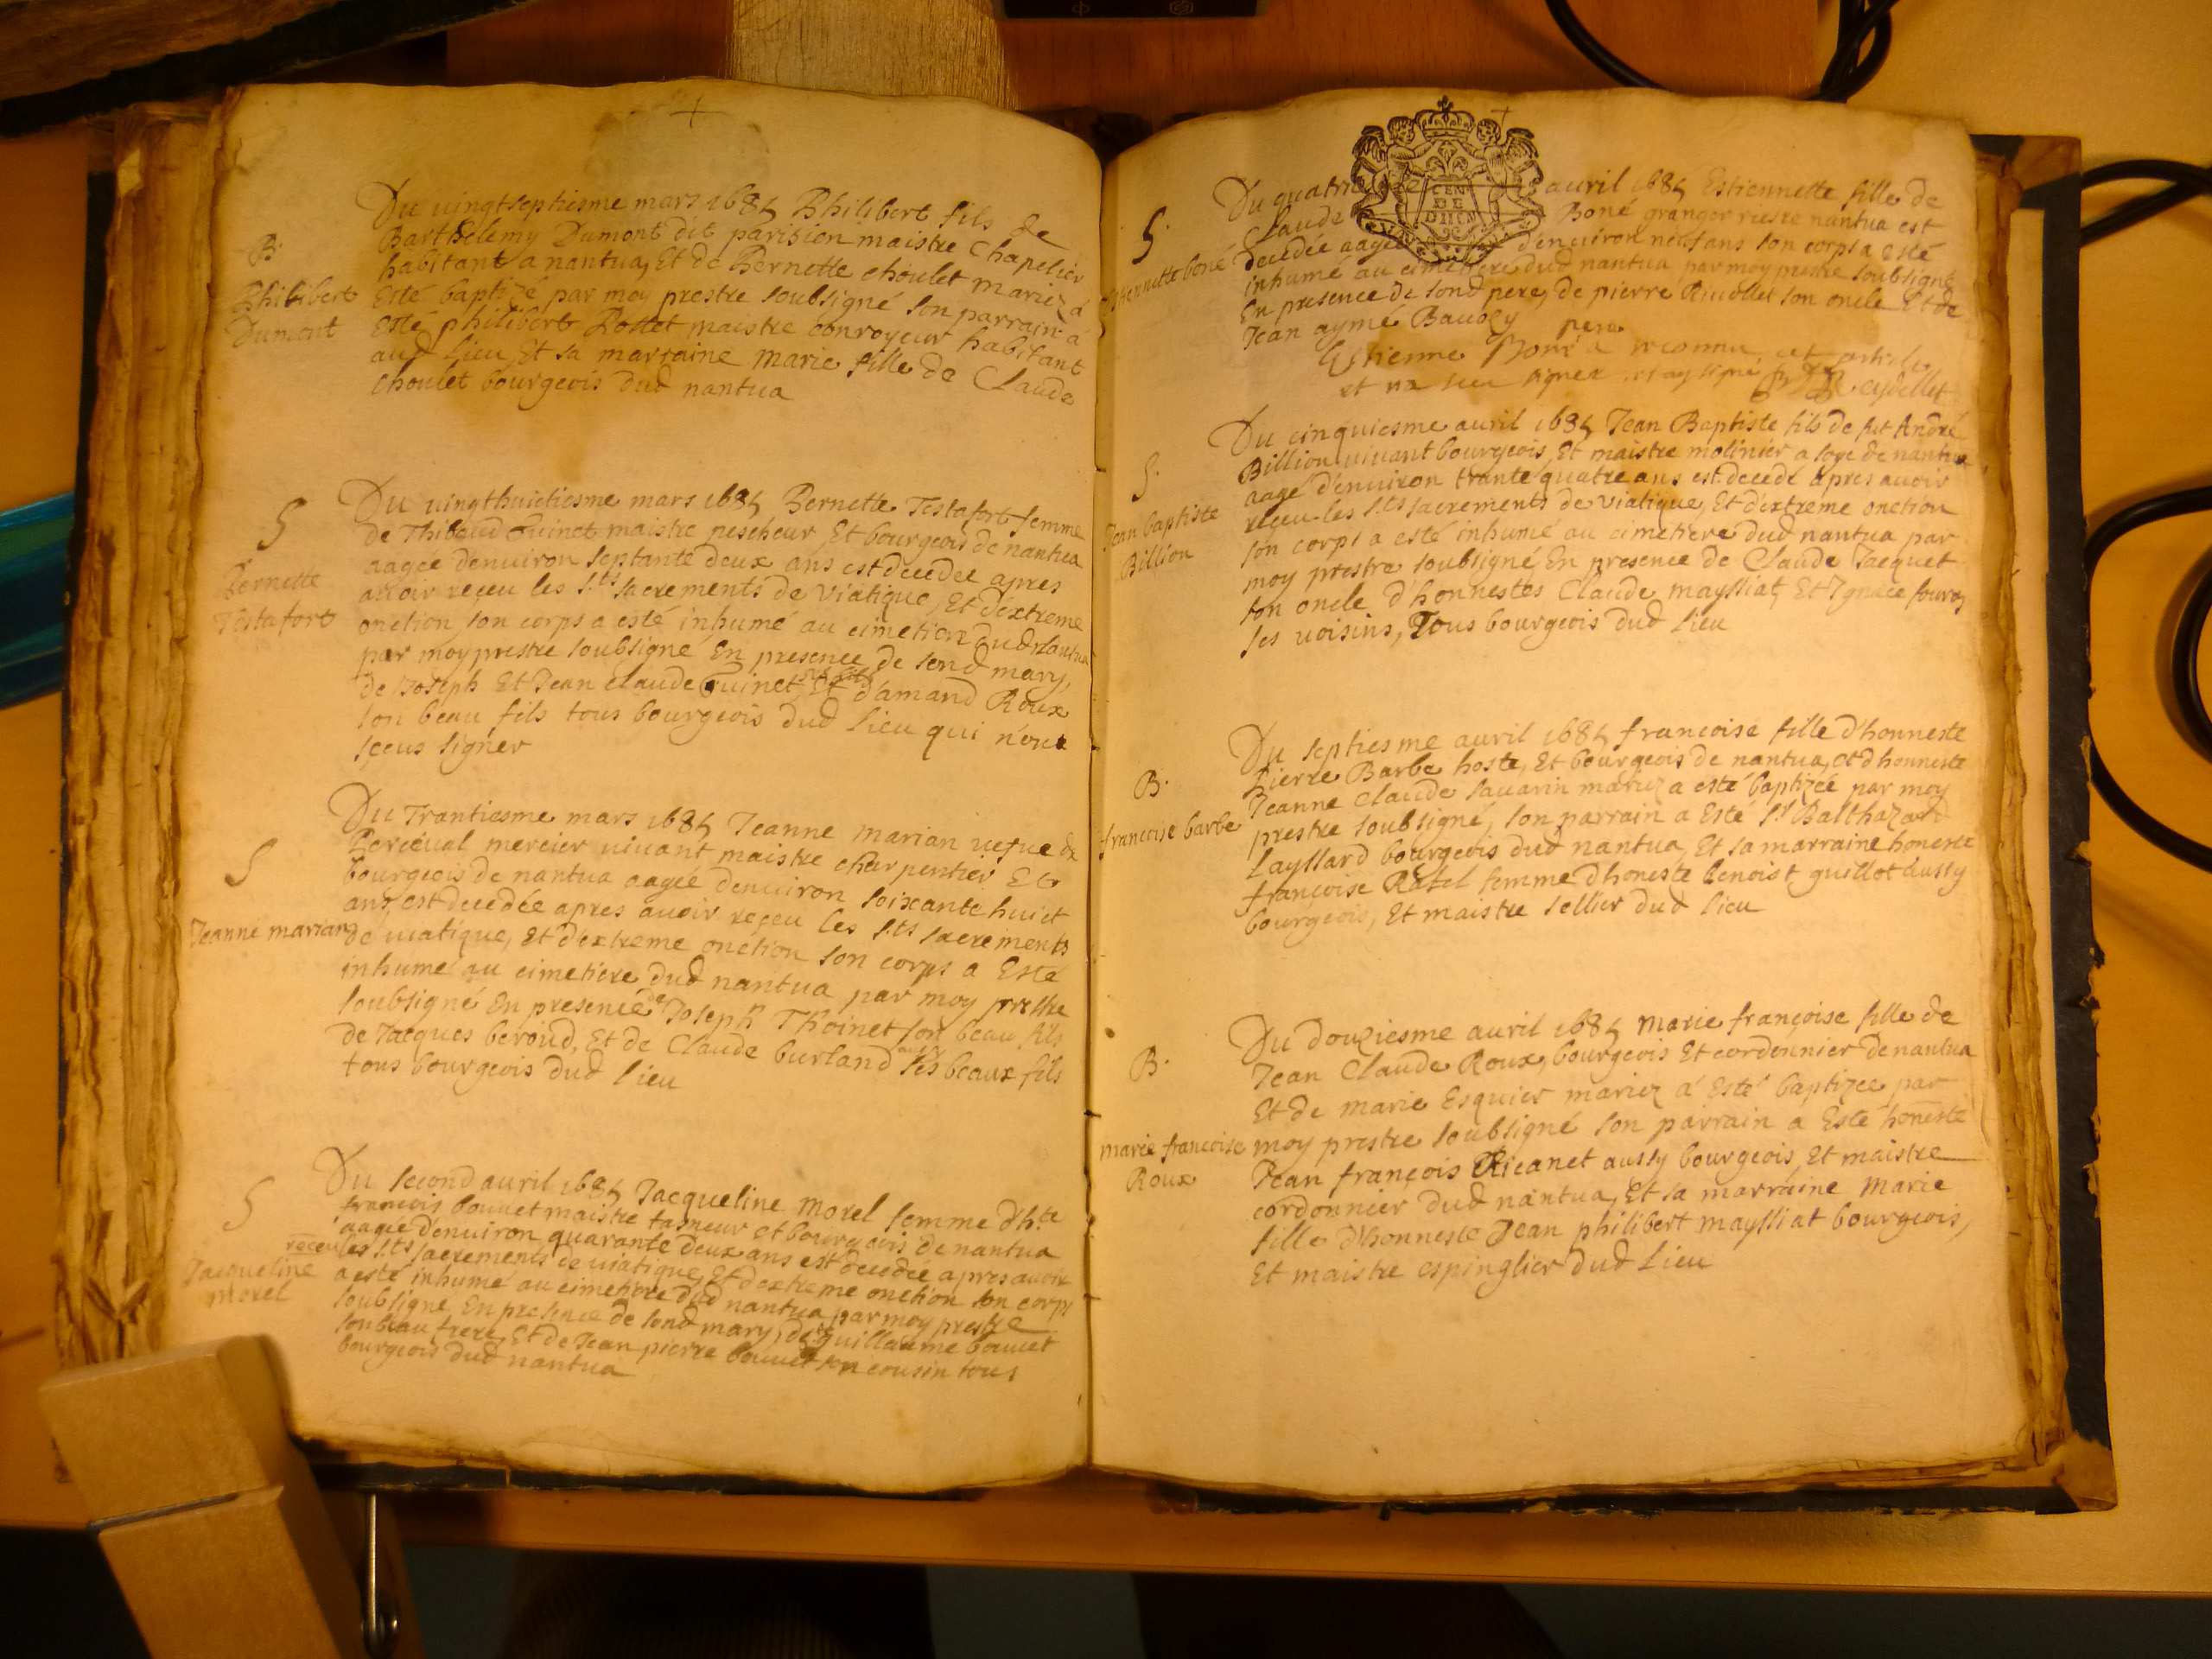 Du vingtseptiesme mars 1685 Philibert fils de
Barthelemy Dumont dit parision maistre Chapelier
habitant a nantua, Et de Bernette choulet mariez a
Esté baptizé par moy prestre soubsigné son parrain a
Esté philibert Pottet maistre conroyeur habitant
aud lieu, Et sa marraine Marie fille de Claude
Choulet bourgeois dud nantua
B.
Philibert
Dumont
Du vingthuictiesme mars 1685 Bernette Testafort femme
de Thibaud Guinet maistre pescheur Et bourgeois de nantua
aagée denuiron septante deux ans est decedee apres
auoir reçeu les s.ts sacrements de Viatique, Et d'extreme
onction son corps a esté inhumé au cimetiere dud Nantua
par moy prestre soubsigné En presence de sond mary,
de Joseph Et Jean Claude Guinet ses fils Et d'amand Roux
son beau fils tous bourgeois dud lieu qui n'ont
sceus signer
S
Bernette
Testafort
Du Trantiesme mars 1685 Jeanne marian vefue de
Perceual mercier viuant maistre charpentier Et
bourgeois de nantua aagée denuiron soixante huict
ans est decedée apres auoir reçeu les s.ts sacrements
de viatique, Et d'extreme onction son corps a Esté
inhumé au cimetiere dud nantua par moy prestre
soubsigné En presence de Joseph Thoinet son beau fils
de Jacques beroud, Et de Claude burland aussy ses beaux fils
tous bourgeois dud lieu
S
Jeanne marian
Du second auril 1685 Jacqueline Morel femme d'h.te
francois bouuet maistre tanneur et bourgeois de nantua
aagée d'enuiron quarante deux ans est decedée apres auoir
reçeu les s.ts sacrements de viatique, Et d'extreme onction son corps
a esté inhumé au cimetiere dud nantua par moy prestre
soubsigné En presence de sond mary, de Guillaume bouuet
son beau frere, Et de Jean pierre bouuet son cousin tous
bourgeois dud nantua
S
Jacqueline
Morel
Du quatriesme auril 1685 Estiennette fille de
Claude Boné granger riere nantua est
decedée aagée d'enuiron neuf ans son corps a esté
inhumé au cimetiere dud nantua par moy prestre soubsigné
En presence de sond pere, de pierre son oncle Et de
Jean aymé
Estienne Boné pere a reconnu cet article
et n'a sceu signer et ay signé
S.
Estiennette boné
CEN
DE
Du cinquiesme auril 1685 Jean Baptiste fils de fut André
Billion viuant bourgeois, Et maistre molinier a soye de nantua
aagé d'enuiron trante quatre ans est decedé apres auoir
reçeu les s.ts sacrements de viatique, Et d'extreme onction
son corps a esté inhumé au cimetiere dud nantua par
moy prestre soubsigné En presence de Claude Jacquet
son oncle d'honnestes Claude maysliat, Et Ignace
ses voisins, Tous bourgeois dud lieu
S.
Jean baptiste
Billion
Du septiesme auril 1685 francoise fille d'honneste
Pierre Barbe hoste, Et bourgeois de nantua, et d'honneste
Jeanne Claude sauarin mariez a esté baptizée par moy
prestre soubsigné, son parrain a Esté s.r Balthazard
Layslard bourgeois dud nantua, Et sa marraine honeste
françoise Ratel femme d'honeste benoist guillot aussy
bourgeois, Et maistre sellier dud lieu
B.
francoise barbe
Du douziesme auril 1685 Marie françoise fille de
Jean Claude Roux, bourgeois Et cordonnier de nantua
Et de Marie Esquier mariez a Esté baptizee par
moy prestre soubsigné son parrain a Esté honeste
Jean françois Ricanet aussy bourgeois, Et maistre
cordonnier dud nantua, Et sa marraine Marie
fille d'honneste Jean philibert maysliat bourgeois,
Et maistre espinglier dud lieu
B.
marie francoise
Roux